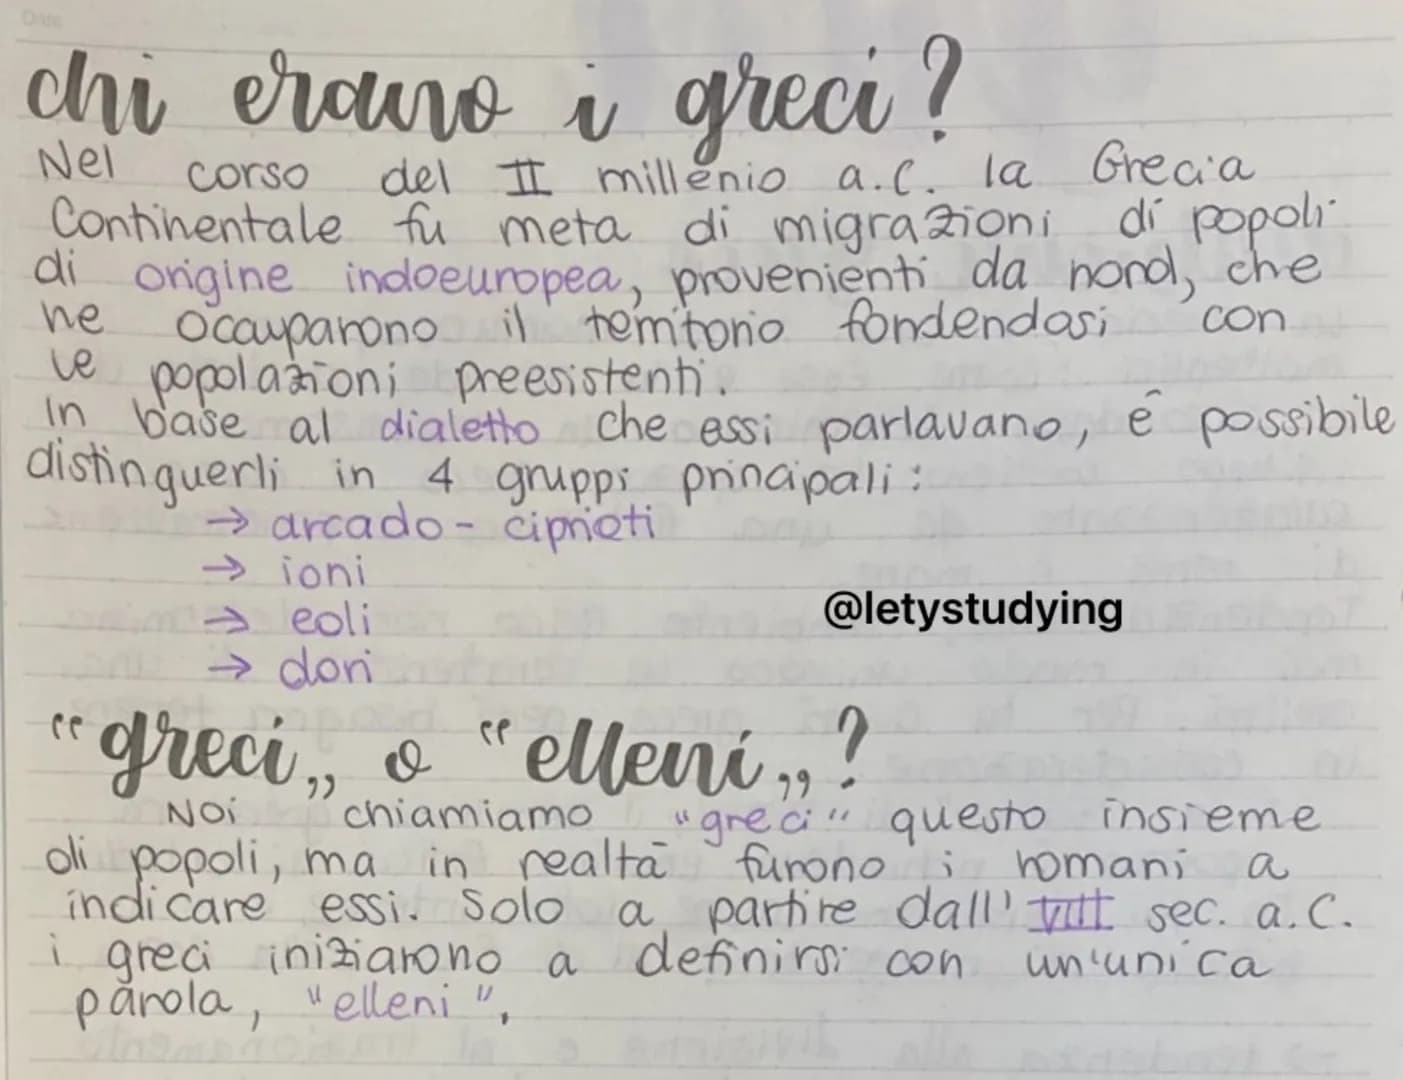 Date
chi erano i greci?
Nel corso del II millenio a.C. la Grecia
Continentale fu meta di migrazioni di popoli
di origine indoeuropea, provenienti da nord, che
ne occuparono il territorio fondendosi con
le popolazioni preesistenti.
In base al dialetto che essi parlavano, è possibile
distinguerli in 4 gruppi principali:
→ arcado-ciprioti
→ ioni
@letystudying
→ eoli
→ dori
"greci„ o "elleni„?
Noi chiamiamo "greci" questo insieme
di popoli, ma in realtà furono i romani a
indicare essi. Solo a partire dall'VIII sec. a.C.
i greci iniziarono a definirsi con un'unica
parola, "elleni".